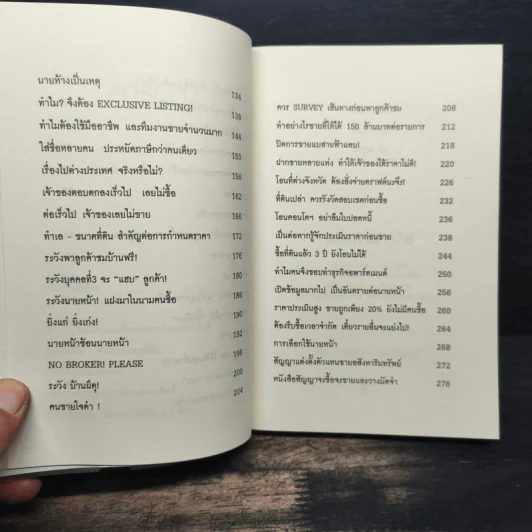 นายห้างเป็นเหตุ 134
ทำไม? จึงต้อง EXCLUSIVE LISTING! 138
ทำไมต้องใช้มืออาชีพ และทีมงานขายจำนวนมาก 144
ใส่ชื่อหลายคน ประหยัดภาษีกว่าคนเดียว 150
เรื่องไปต่างประเทศ จริงหรือไม่? 156
เจ้าของตอบตกลงเร็วไป เลยไม่ซื้อ 162
ต่อเร็วไป เจ้าของเลยไม่ขาย 166
ทำเล - ขนาดที่ดิน สำคัญต่อการกำหนดราคา 172
ระวังพาลูกค้าชมบ้านฟรี! 176
ระวังบุคคลที่3 จะ "แฮบ" ลูกค้า! 180
ระวังนายหน้า! แฝงมาในนามคนซื้อ 186
ยิ่งแก่ ยิ่งเก่ง! 190
นายหน้าซ้อนนายหน้า 192
NO BROKER! PLEASE 196
ระวัง บ้านผีดุ! 200
คนขายใจดำ ! 204
ควร SURVEY เส้นทางก่อนพาลูกค้าชม 208
ทำอย่างไรขายที่ให้ได้ 150 ล้านบาทต่อรายการ 212
ปิดการขายแบบสายฟ้าแลบ! 218
ฝากขายหลายแห่ง ทำให้เจ้าของได้ราคาไม่ดี! 220
โอนที่ต่างจังหวัด ต้องสั่งจ่ายดราฟต์นะจ๊ะ! 226
ที่ดินเปล่า ควรรังวัดสอบเขตก่อนซื้อ 232
โอนคอนโดฯ อย่าลืมใบปลอดหนี้ 236
เป็นต่อหากรู้จักประเมินราคาก่อนขาย 238
ซื้อที่ดินแล้ว 3 ปี ยังโอนไม่ได้ 244
ทำไมคนจึงชอบทำธุรกิจอพาร์ตเมนต์ 250
เปิดข้อมูลมากไป เป็นอันตรายต่อนายหน้า 256
ราคาประเมินสูง ขายถูกเพียง 20% ยังไม่มีคนซื้อ 260
ต้องรีบซื้อเวลาจำกัด เดี๋ยวรายอื่นจะแย่งไป! 264
การเลือกใช้นายหน้า 268
สัญญาแต่งตั้งตัวแทนขายอสังหาริมทรัพย์ 272
หนังสือสัญญาจะซื้อจะขายและวางมัดจำ 276